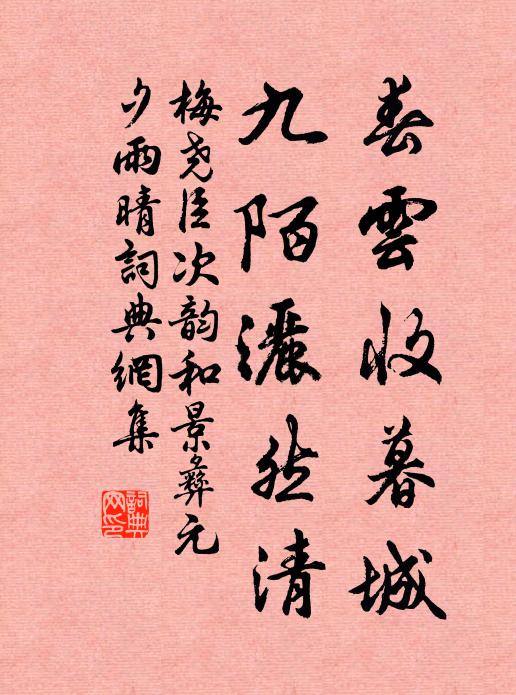 春雲收暮城
九陌灑然清
梅堯臣次韵和景彝元
夕雨晴詞典網集
詞典網印